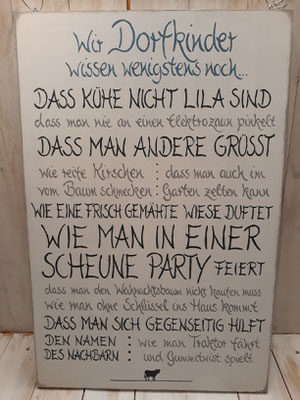 Wir Dorfkinder
wissen wenigstens noch...
DASS KÜHE NICHT LILA SIND
dass man nie an einen Elektrozaun pinkelt
DASS MAN ANDERE GRÜSST
wie reife Kirschen : dass man auch im
vom Baum schmecken : Garten zelten kann
WIE EINE FRISCH GEMÄHTE WIESE DUFTET
WIE MAN IN EINER
SCHEUNE PARTY FEIERT
dass man den Weihnachtsbaum nicht kaufen muss
wie man ohne Schlüssel ins Haus kommt
DASS MAN SICH GEGENSEITIG HILFT
DEN NAMEN : wie man Traktor fährt
DES NACHBARN : und Gummitwist spielt